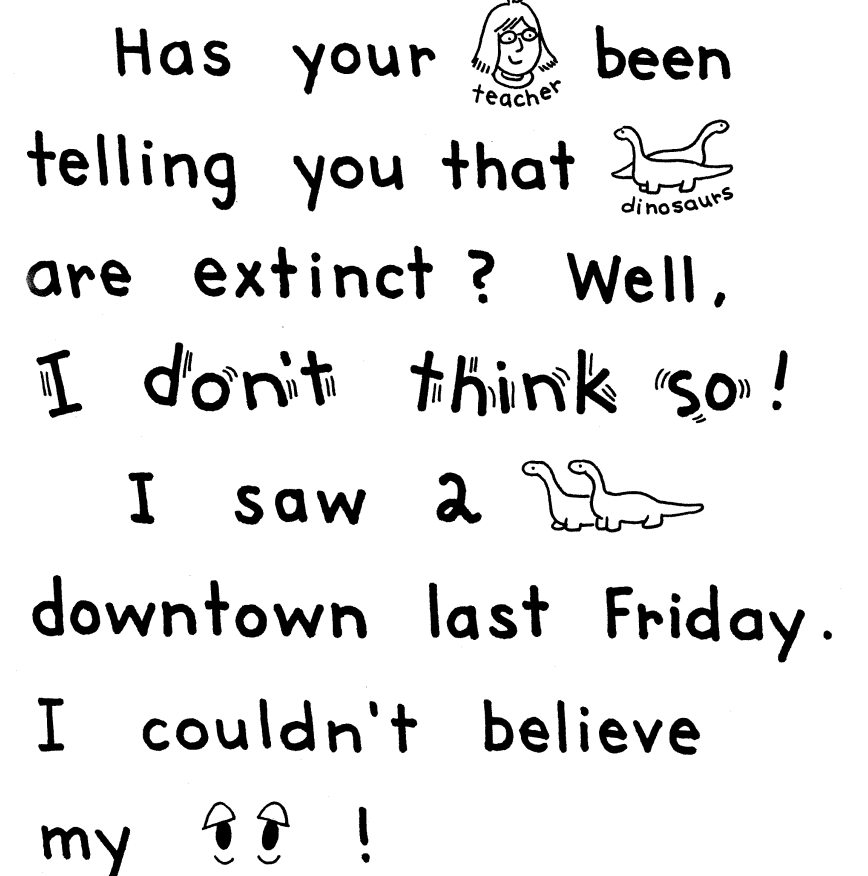 Has your teacher been
telling you that dinosaurs
are extinct? Well,
I don't think so!
I saw 2
downtown last Friday.
I couldn't believe
my !